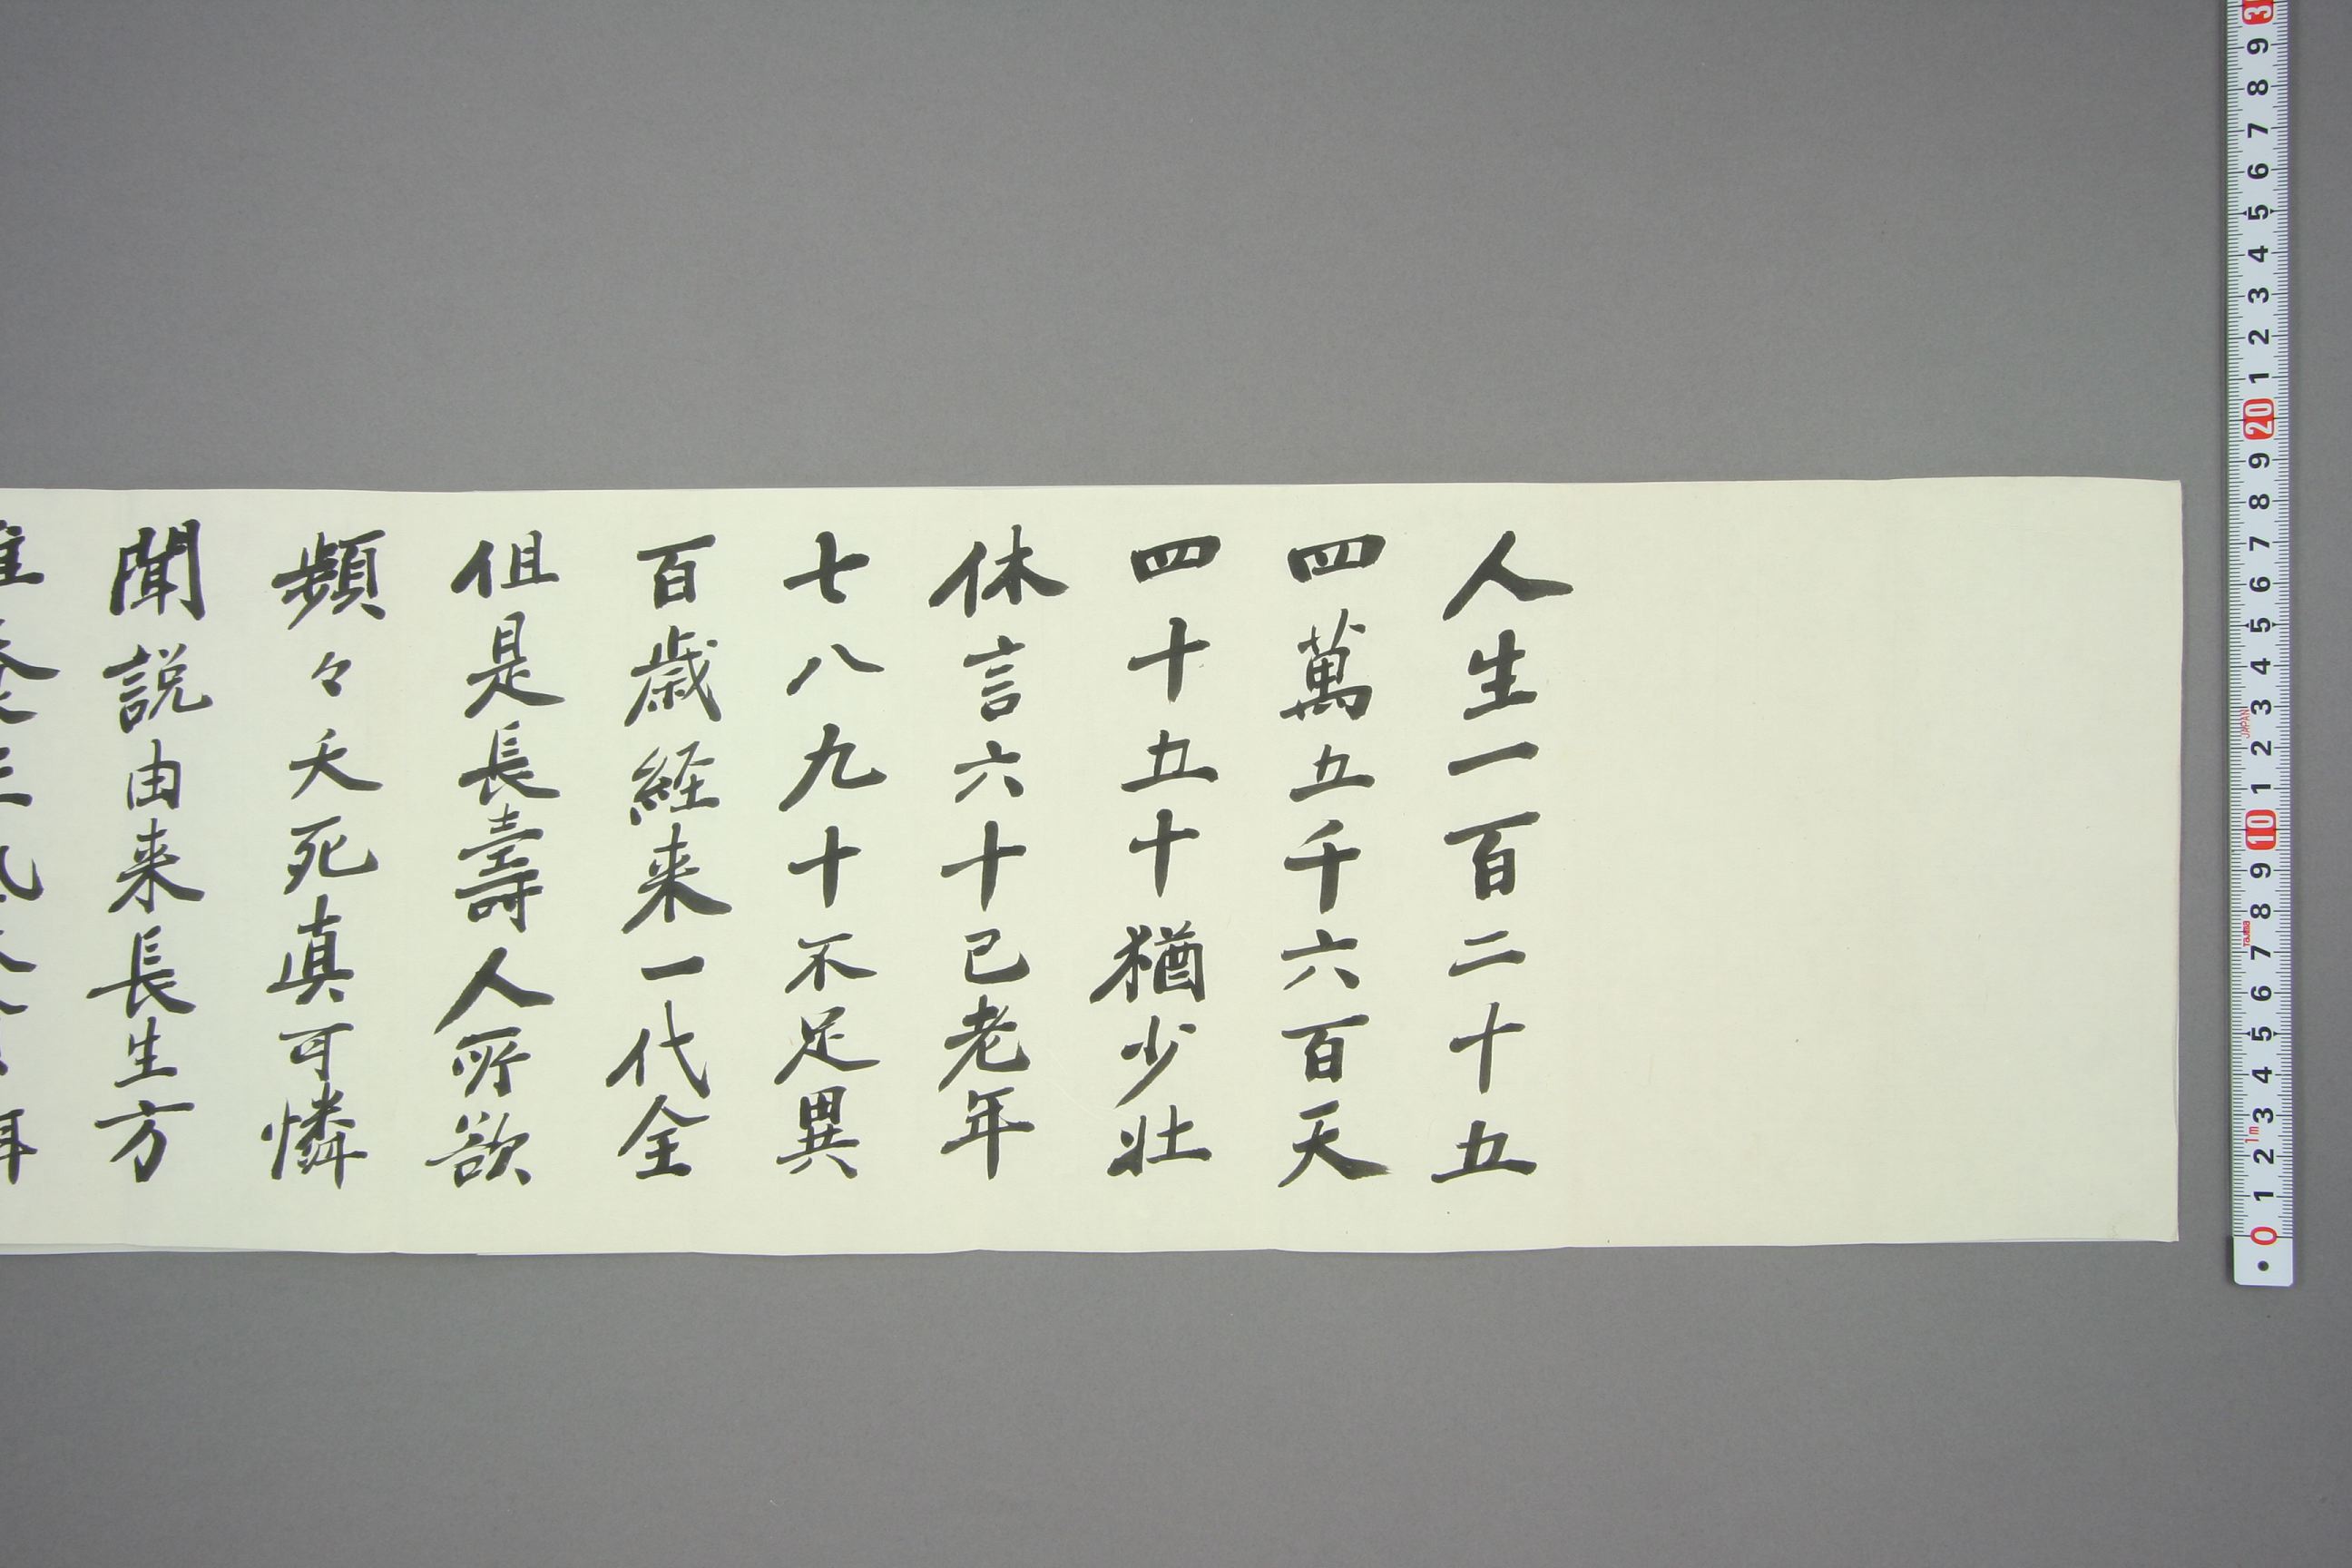 人生一百二十五
四萬五千六百天
四十五十猶少壯
休言六十已老年
七八九十不足異
百歳経来一代全
但是長壽人所欲
頻々夭死真可憐
聞説由来長生方